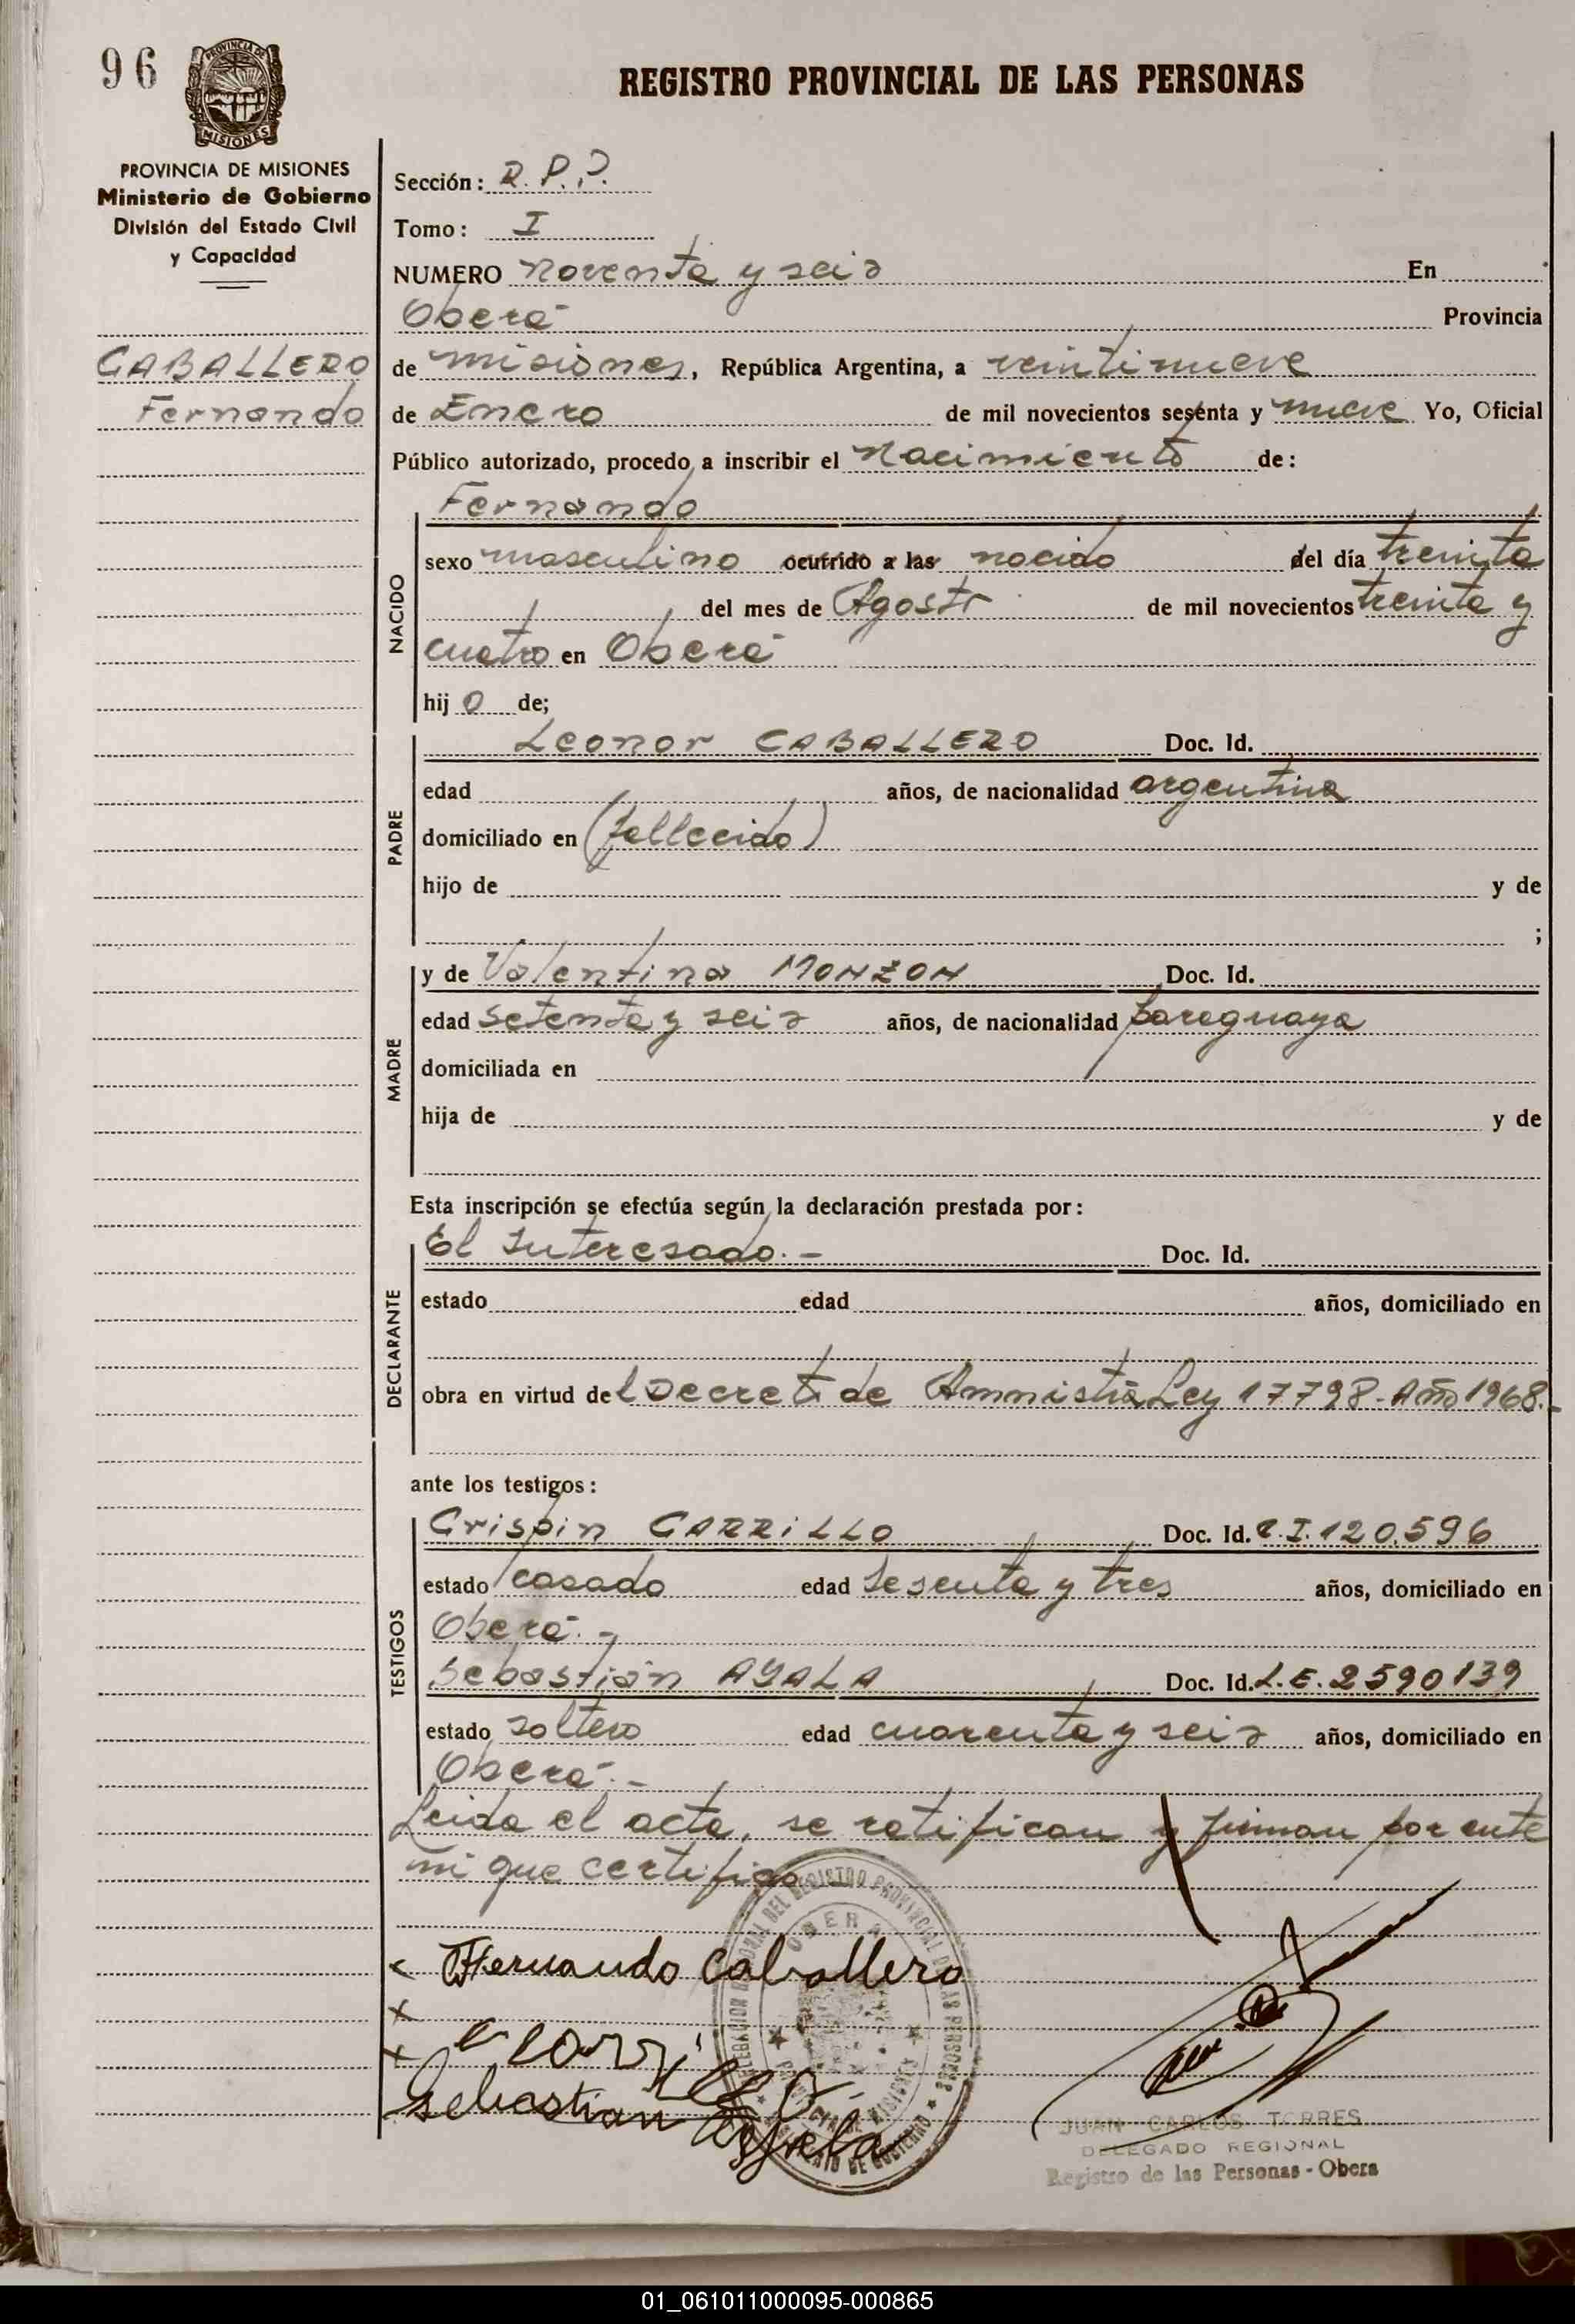 96
PROVINCIA DE
MISIONES
PROVINCIA DE MISIONES
Ministerio de Gobierno
División del Estado Civil
y Capacidad
CABALLERO
Fernando
REGISTRO PROVINCIAL DE LAS PERSONAS
Sección: R.P.P.
Tomo: I
NUMERO noventa y seis En
Oberá Provincia
de misiones, República Argentina, a veintinueve
de Enero de mil novecientos sesenta y nueve Yo, Oficial
Público autorizado, procedo a inscribir el Nacimiento de:
NACIDO
Fernando
sexo masculino ocurrido a las nacido del día treinta
del mes de Agosto de mil novecientos treinta y
cuatro en Oberá
hij o de;
PADRE
Leonor CABALLERO Doc. Id.
edad años, de nacionalidad argentina
domiciliado en (fallecido)
hijo de y de
;
MADRE
y de Valentina MONZON Doc. Id.
edad setenta y seis años, de nacionalidad paraguaya
domiciliada en
hija de y de
Esta inscripción se efectúa según la declaración prestada por:
DECLARANTE
El Interesado.- Doc. Id.
estado edad años, domiciliado en
obra en virtud del Decreto de Amnistía Ley 17798-Año 1968.-
ante los testigos:
TESTIGOS
Crispin CARRILLO Doc. Id. C.I. 120.596
estado casado edad sesenta y tres años, domiciliado en
Oberá.-
Sebastián AYALA Doc. Id. L.E. 2590139
estado soltero edad cuarenta y seis años, domiciliado en
Oberá.-
Leida el acta, se ratifican y firman por ante
mi que certifico
Fernando Caballero
C Carrillo
Sebastian Ayala
DELEGACION REGIONAL DEL REGISTRO PROVINCIAL DE LAS PERSONAS
OBERA
PROVINCIA DE MISIONES
MINISTERIO DE GOBIERNO
JUAN CARLOS TORRES
DELEGADO REGIONAL
Registro de las Personas - Obera
01_061011000095-000865